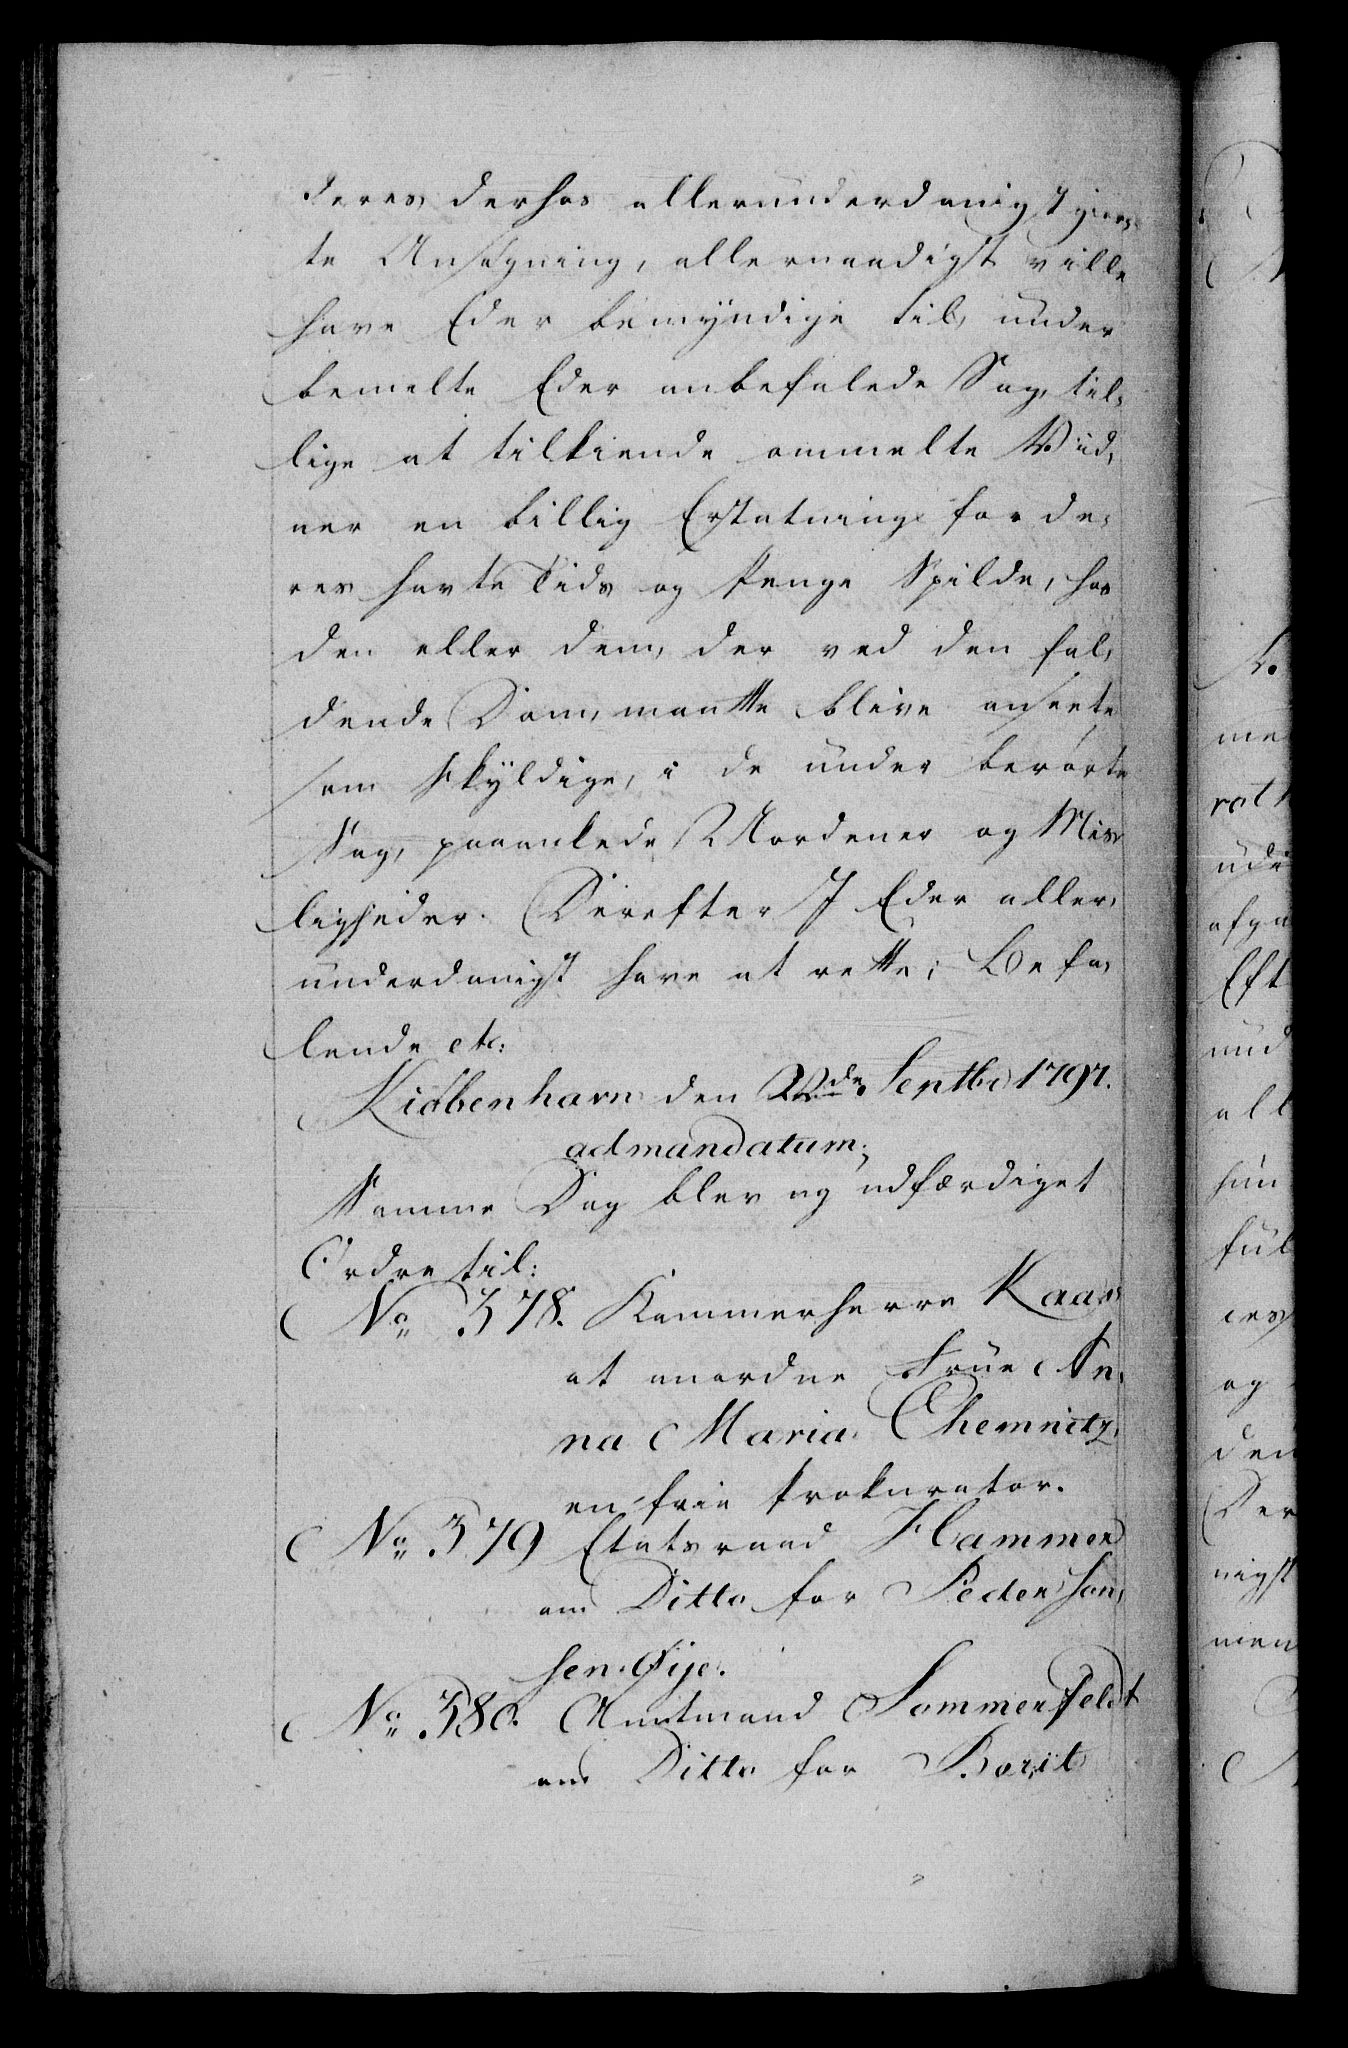 deres derhos allerunderdanigst giør-
te Ansøgning, allernaadigst ville
have Eder bemyndige til, under
bemelte Eder anbefalede Sag, til-
lige at tilkiende ommelte Vid-
ner en billig Erstatning for de-
res havte Tids og Penge Spilde, hos
den eller dem, der ved den fal-
dende Dom maatte blive anseete
som skyldige, i de under berørte
Sag, paaankede Uordener og Mis-
ligheder. Derefter I Eder aller-
underdanigst have at rette; Befa-
lende etc:
Kiøbenhavn den 22de Septbr 1797.
ad mandatum;
Samme Dag blev og udfærdiget
Ordre til:
No 378. Kammerherre Kaas
at anordne Frue An-
na Maria Chemnitz
en frie Prokurator.
No 379 Etatsraad Hammer
om Ditto for Peder Han-
sen Øije.
No 380. Amtmand Sommerfeldt
om Ditto for Borit